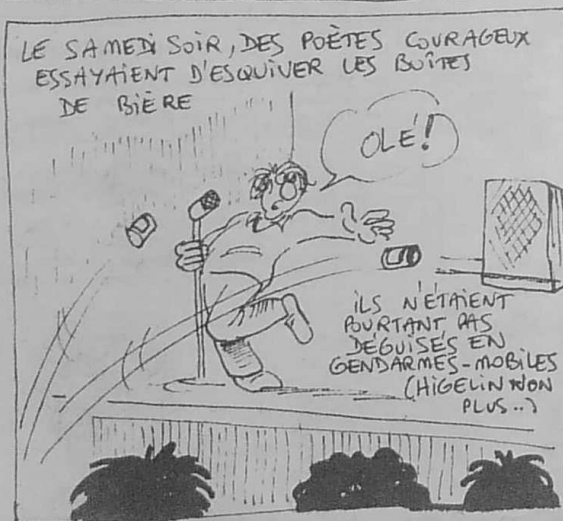 LE SAMEDI SOIR, DES POÈTES COURAGEUX
ESSAYAIENT D'ESQUIVER LES BOÎTES
DE BIÈRE
OLÉ!
ILS N'ÉTAIENT
POURTANT PAS
DÉGUISÉS EN
GENDARMES-MOBILES
(HIGELIN NON
PLUS..)